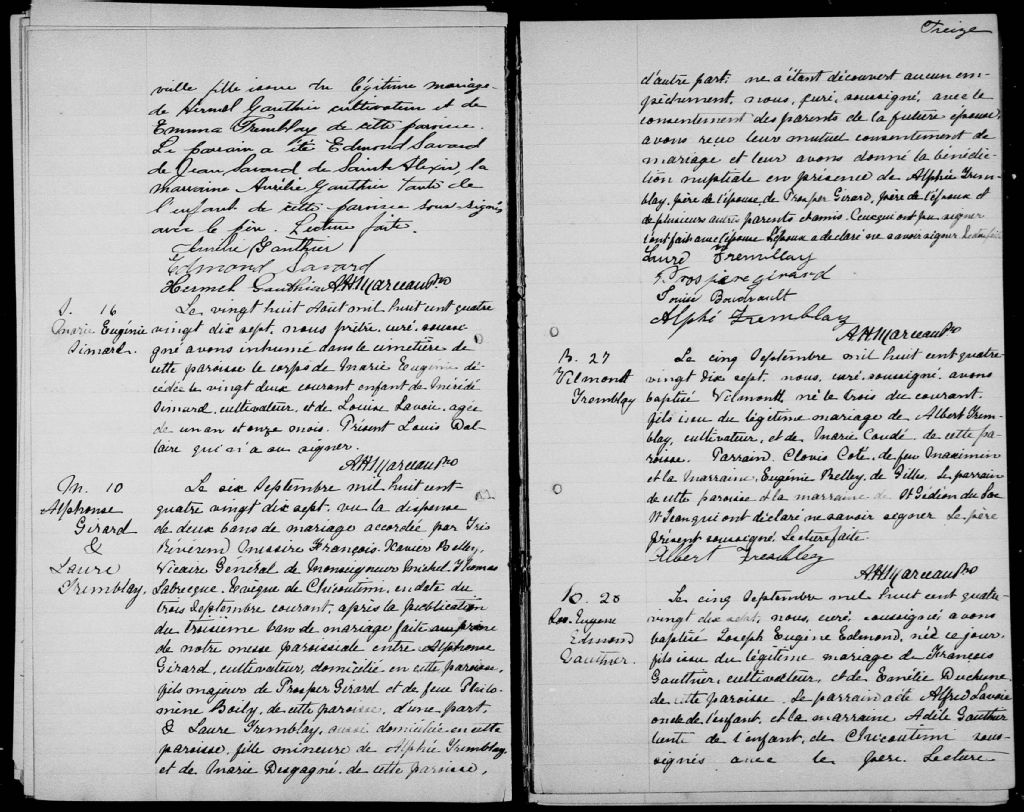 veille fille issue du légitime mariage
de Hermel Gauthier cultivateur et de
Emma Tremblay de cette paroisse.
Le parrain a été Edmond Savard
de Jean Savard de Saint Alexis, la
marraine Amélie Gauthier tante de
l'enfant de cette paroisse sous-signés
avec le père. Lecture faite.
Amélie Gauthier
Edmond Savard
Hermel Gauthier AH Marceau Ptre
S. 16
Marie Eugénie
Simard.
Le vingt huit Août mil huit cent quatre
vingt dix sept, nous prêtre, curé, soussi-
gné avons inhumé dans le cimetière de
cette paroisse le corps de Marie Eugénie dé-
cédée le vingt deux courant enfant de Mérédé
Simard, cultivateur, et de Louise Lavoie, agée
de un an et onze mois. Présent Louis Dal-
laire qui n'a su signer.
AH Marceau Ptro
M. 10
Alphonse
Girard
&
Laure
Tremblay.
Le six Septembre mil huit cent
quatre vingt dix sept, vu la dispense
de deux bans de mariage accordée par Très
Révérend Messire François-Xavier Belley,
Vicaire Général de Monseigneur Michel-Thomas
Labrecque, Evêque de Chicoutimi, en date du
trois Septembre courant, après la publication
du troisième ban de mariage faite au prône
de notre messe paroissiale entre Alphonse
Girard, cultivateur, domicilié en cette paroisse,
fils majeur de Prosper Girard et de feue Philo-
mène Boily, de cette paroisse, d'une part,
& Laure Tremblay, aussi domiciliée en cette
paroisse, fille mineure de Alphée Tremblay
et de Marie Desgagné, de cette paroisse,
Treize
d'autre part; ne s'étant découvert aucun em-
pêchement, nous, curé, soussigné, avec le
consentement des parents de la future épouse,
avons reçu leur mutuel consentement de
mariage et leur avons donné la bénédic-
tion nuptiale en présence de Alphée Trem-
blay, père de l'épouse, de Prosper Girard, père de l'époux et
de plusieurs autres parents et amis. Ceux qui ont pu signer
l'ont fait avec l'épouse. L'époux a déclaré ne savoir signer. Lecture faite
Laure Tremblay
Prospère girard
Louise Boudrault
Alphé Tremblay
AH Marceau Ptro
B. 27
Vilmontt
Tremblay
Le cinq Septembre mil huit cent quatre-
vingt dix sept, nous, curé, soussigné, avons
baptisé Vilmontt, né le trois du courant,
fils issu du légitime mariage de Albert Trem-
blay, cultivateur, et de Marie Coudé, de cette pa-
roisse. Parrain Clovis Coté, de feu Maximin
et la Marraine, Eugénie Belley, de Gilles, le parrain
de cette paroisse et la marraine de St Gédéon du Lac
St Jean qui ont déclaré ne savoir signer. Le père
présent soussigné. Lecture faite.
Albert Tremblay
AH Marceau Ptro
B. 28
Jos. Eugène
Edmond
Gauthier.
Le cinq Septembre mil huit cent quatre-
vingt dix sept, nous, curé, soussigné, avons
baptisé Joseph Eugène Edmond, né de ce jour,
fils issu du légitime mariage de François
Gauthier, cultivateur, et de Emélie Duchene
de cette paroisse. Le parrain a été Alfred Lavoie
oncle de l'enfant, et la marraine Adèle Gauthier
tante de l'enfant, de Chicoutimi sous-
signés avec le père. Lecture